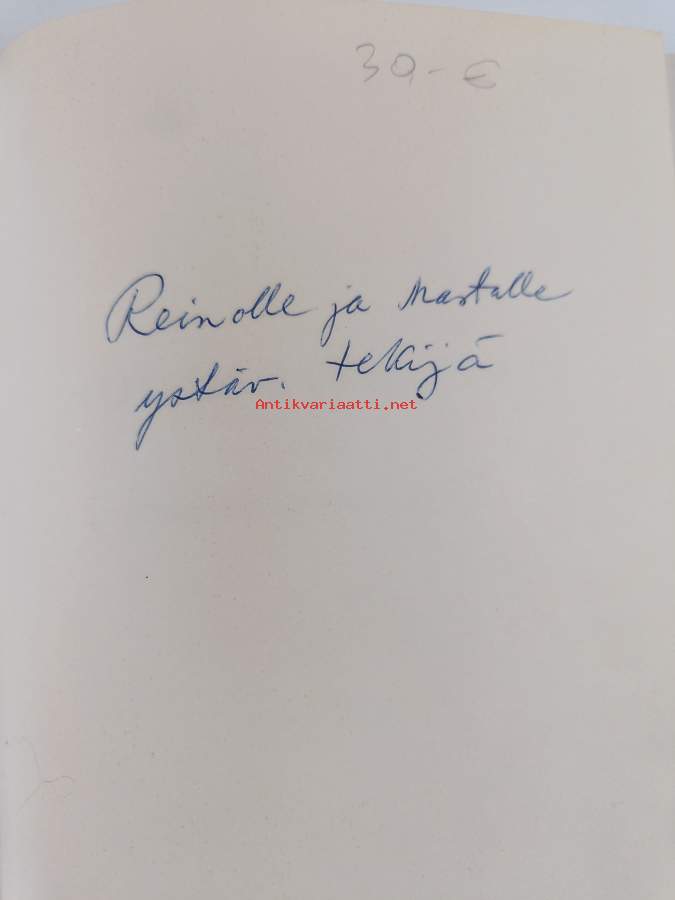 30,- €
Reinolle ja Martalle
ystäv. tekijä
Antikvariaatti.net